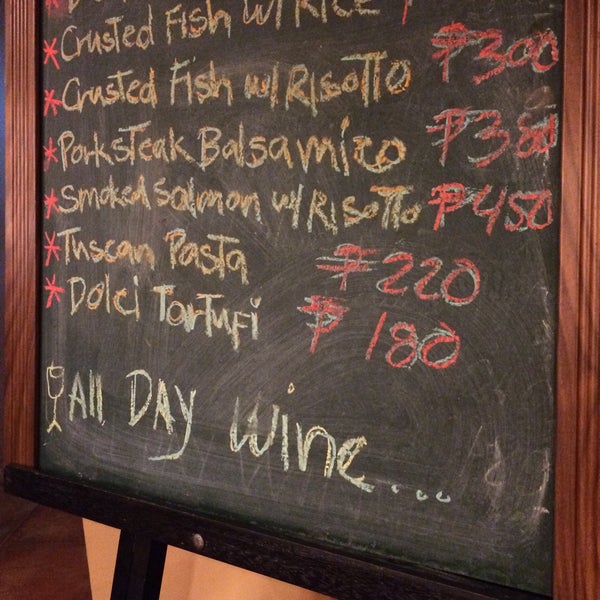 * Crusted Fish w/ RICE ₱
* Crusted Fish w/ RISOTTO ₱300
* Porksteak Balsamico ₱380
* Smoked Salmon w/ RISOTTO ₱450
* Tuscan Pasta ₱220
* Dolci Tartufi ₱180
All DAY Wine...